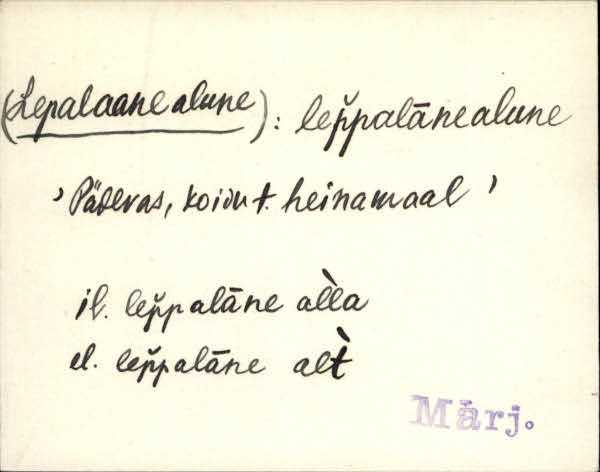 (Lepalaanealune): lep̆palānealune
'Päderas, koidu t. heinamaal'
il. lep̆palāne al̀la
el. lep̆palāne alt̀
Märj.